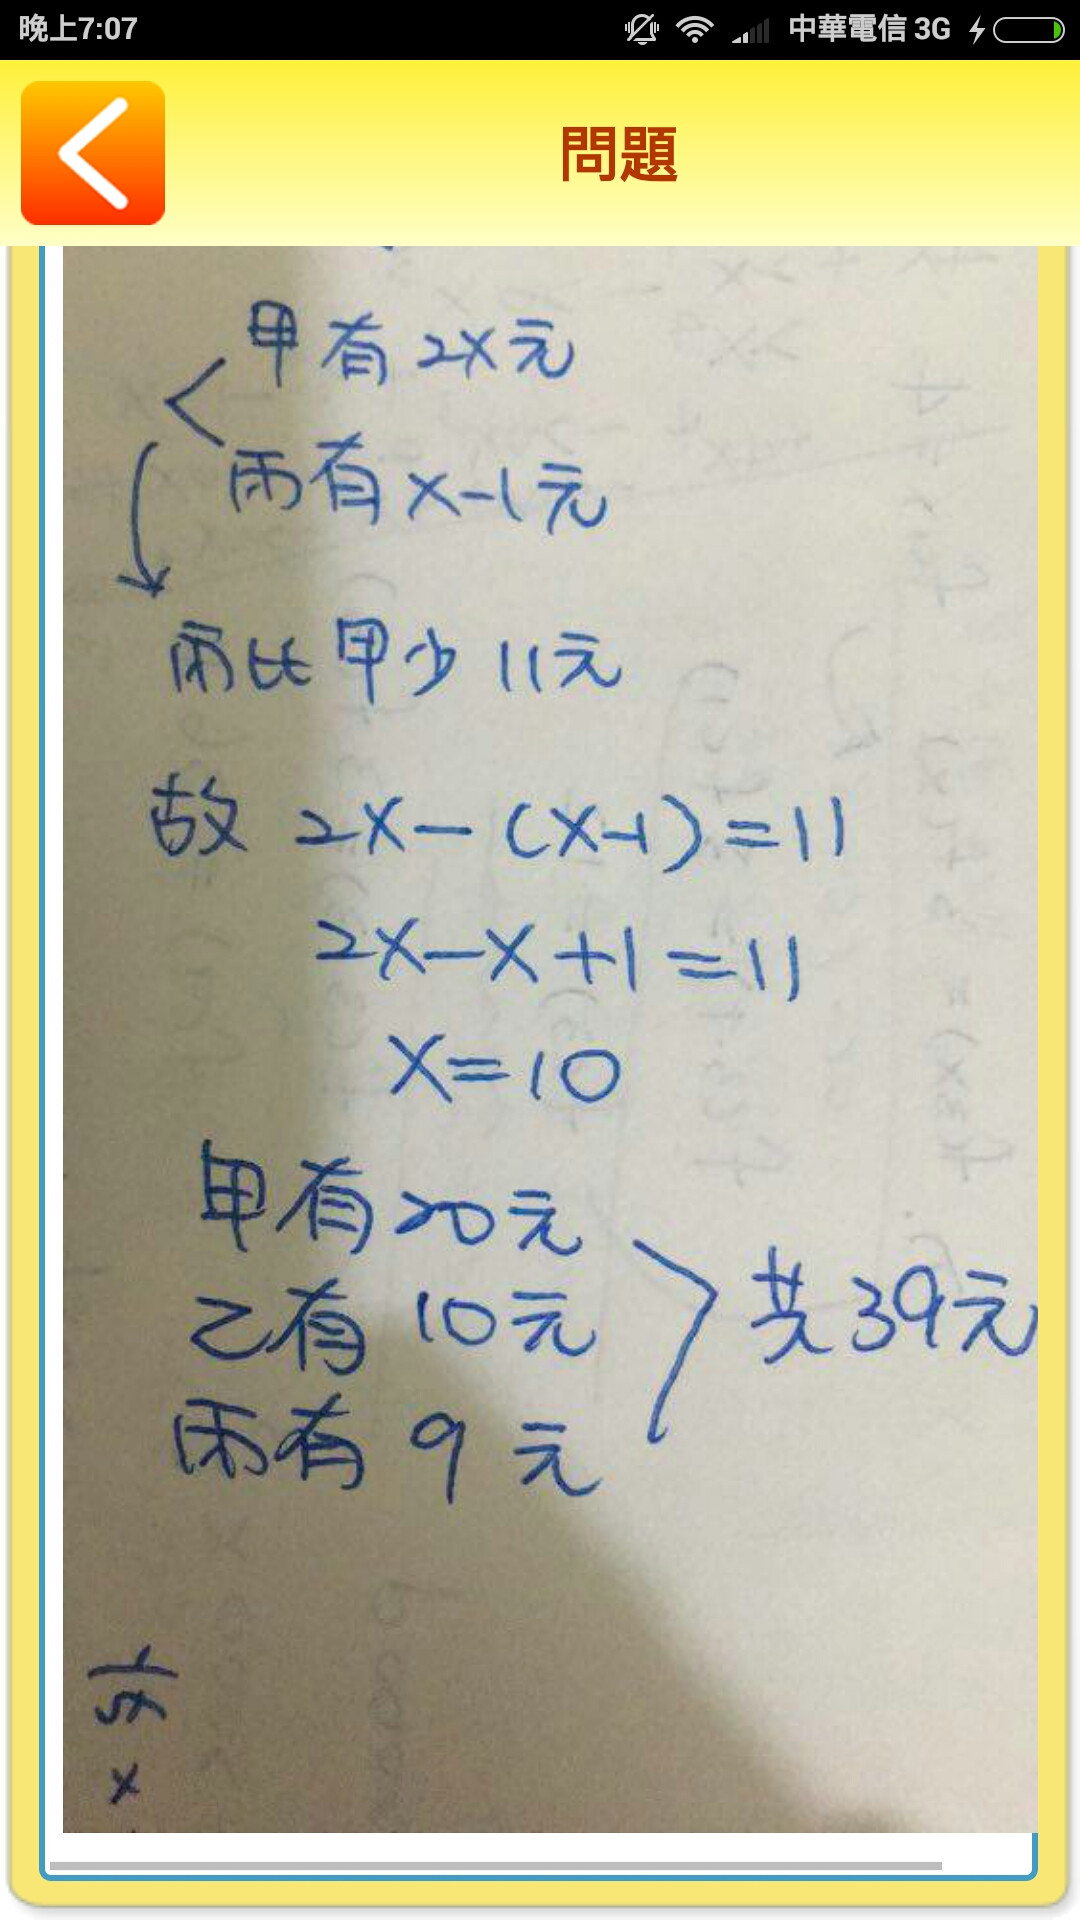 晚上7:07
中華電信 3G
問題
甲有2x元
丙有x-1元
丙比甲少11元
故 2x-(x-1)=11
2x-x+1=11
x=10
甲有20元
乙有10元
丙有9元
共39元